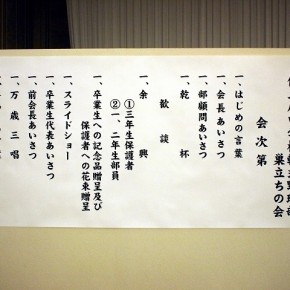 巣立ちの会
会次第
一、はじめの言葉
一、会長あいさつ
一、部顧問あいさつ
一、乾杯
歓談
一、余興
①三年生保護者
②一、二年生部員
一、卒業生への記念品贈呈及び
保護者への花束贈呈
一、スライドショー
一、卒業生代表あいさつ
一、前会長あいさつ
一、万歳三唱